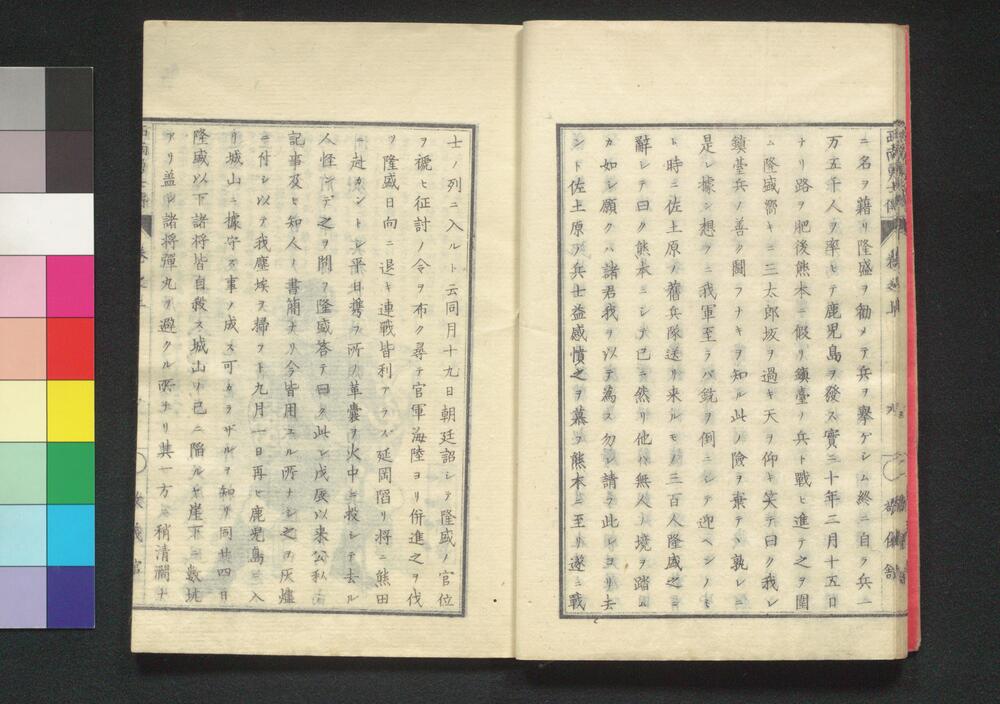 ニ名ヲ藉リ隆盛ヲ勧メテ兵ヲ擧ゲシム終ニ自ラ兵一
万五千人ヲ率ヒテ鹿児島ヲ發ス實ニ十年二月十五日
ナリ路ヲ肥後熊本ニ假リ鎮臺ノ兵ト戰ヒ進テ之ヲ圍
ム隆盛嚮キニ三太郎坂ヲ過キ天ヲ仰キ笑テ曰ク我レ
鎮臺兵ノ善ク鬪フナキヲ知ル此ノ險ヲ棄テヽ孰レニ
是レ據ン想フニ我軍至ラバ銃ヲ倒ニシテ迎ヘンノミ
ト時ニ佐土原ノ舊兵隊送リ来ルモノ三百人隆盛之ニ
辭シテ曰ク熊本ニシテ已ニ然リ他ハ無人ノ境ヲ踏ム
カ如シ願クハ諸君我ヲ以テ為ス勿レ請フ此レヨリ去
ント佐土原ノ兵士益感憤之ヲ慕ヲ熊本ニ至リ遂ニ戰
士ノ列ニ入ルト云同月十九日朝廷詔シテ隆盛ノ官位
ヲ褫ヒ征討ノ令ヲ布ク尋テ官軍海陸ヨリ併進之ヲ伐
ヲ隆盛日向ニ退キ連戰皆利アラズ延岡陷リ将ニ熊田
ニ赴カントシ平日携フ所ノ革嚢ヲ火中ニ投シテ去ル
人怪ンデ之ヲ問フ隆盛答テ曰ク此レ戊辰以来公私ノ
記事及ヒ知人ノ書簡ナリ今皆用ユル所ナシ之ヲ灰燼
ニ付シ以テ我塵埃ヲ掃フト九月一日再ヒ鹿児島ニ入
リ城山ニ據守ス事ノ成ス可カラザルヲ知リ同廿四日
隆盛以下諸将皆自殺ス城山ノ已ニ陷ルヤ崖下ニ數坑
アリ盖シ諸将彈丸ヲ避クル所ナリ其一方ハ稍清濶ナ